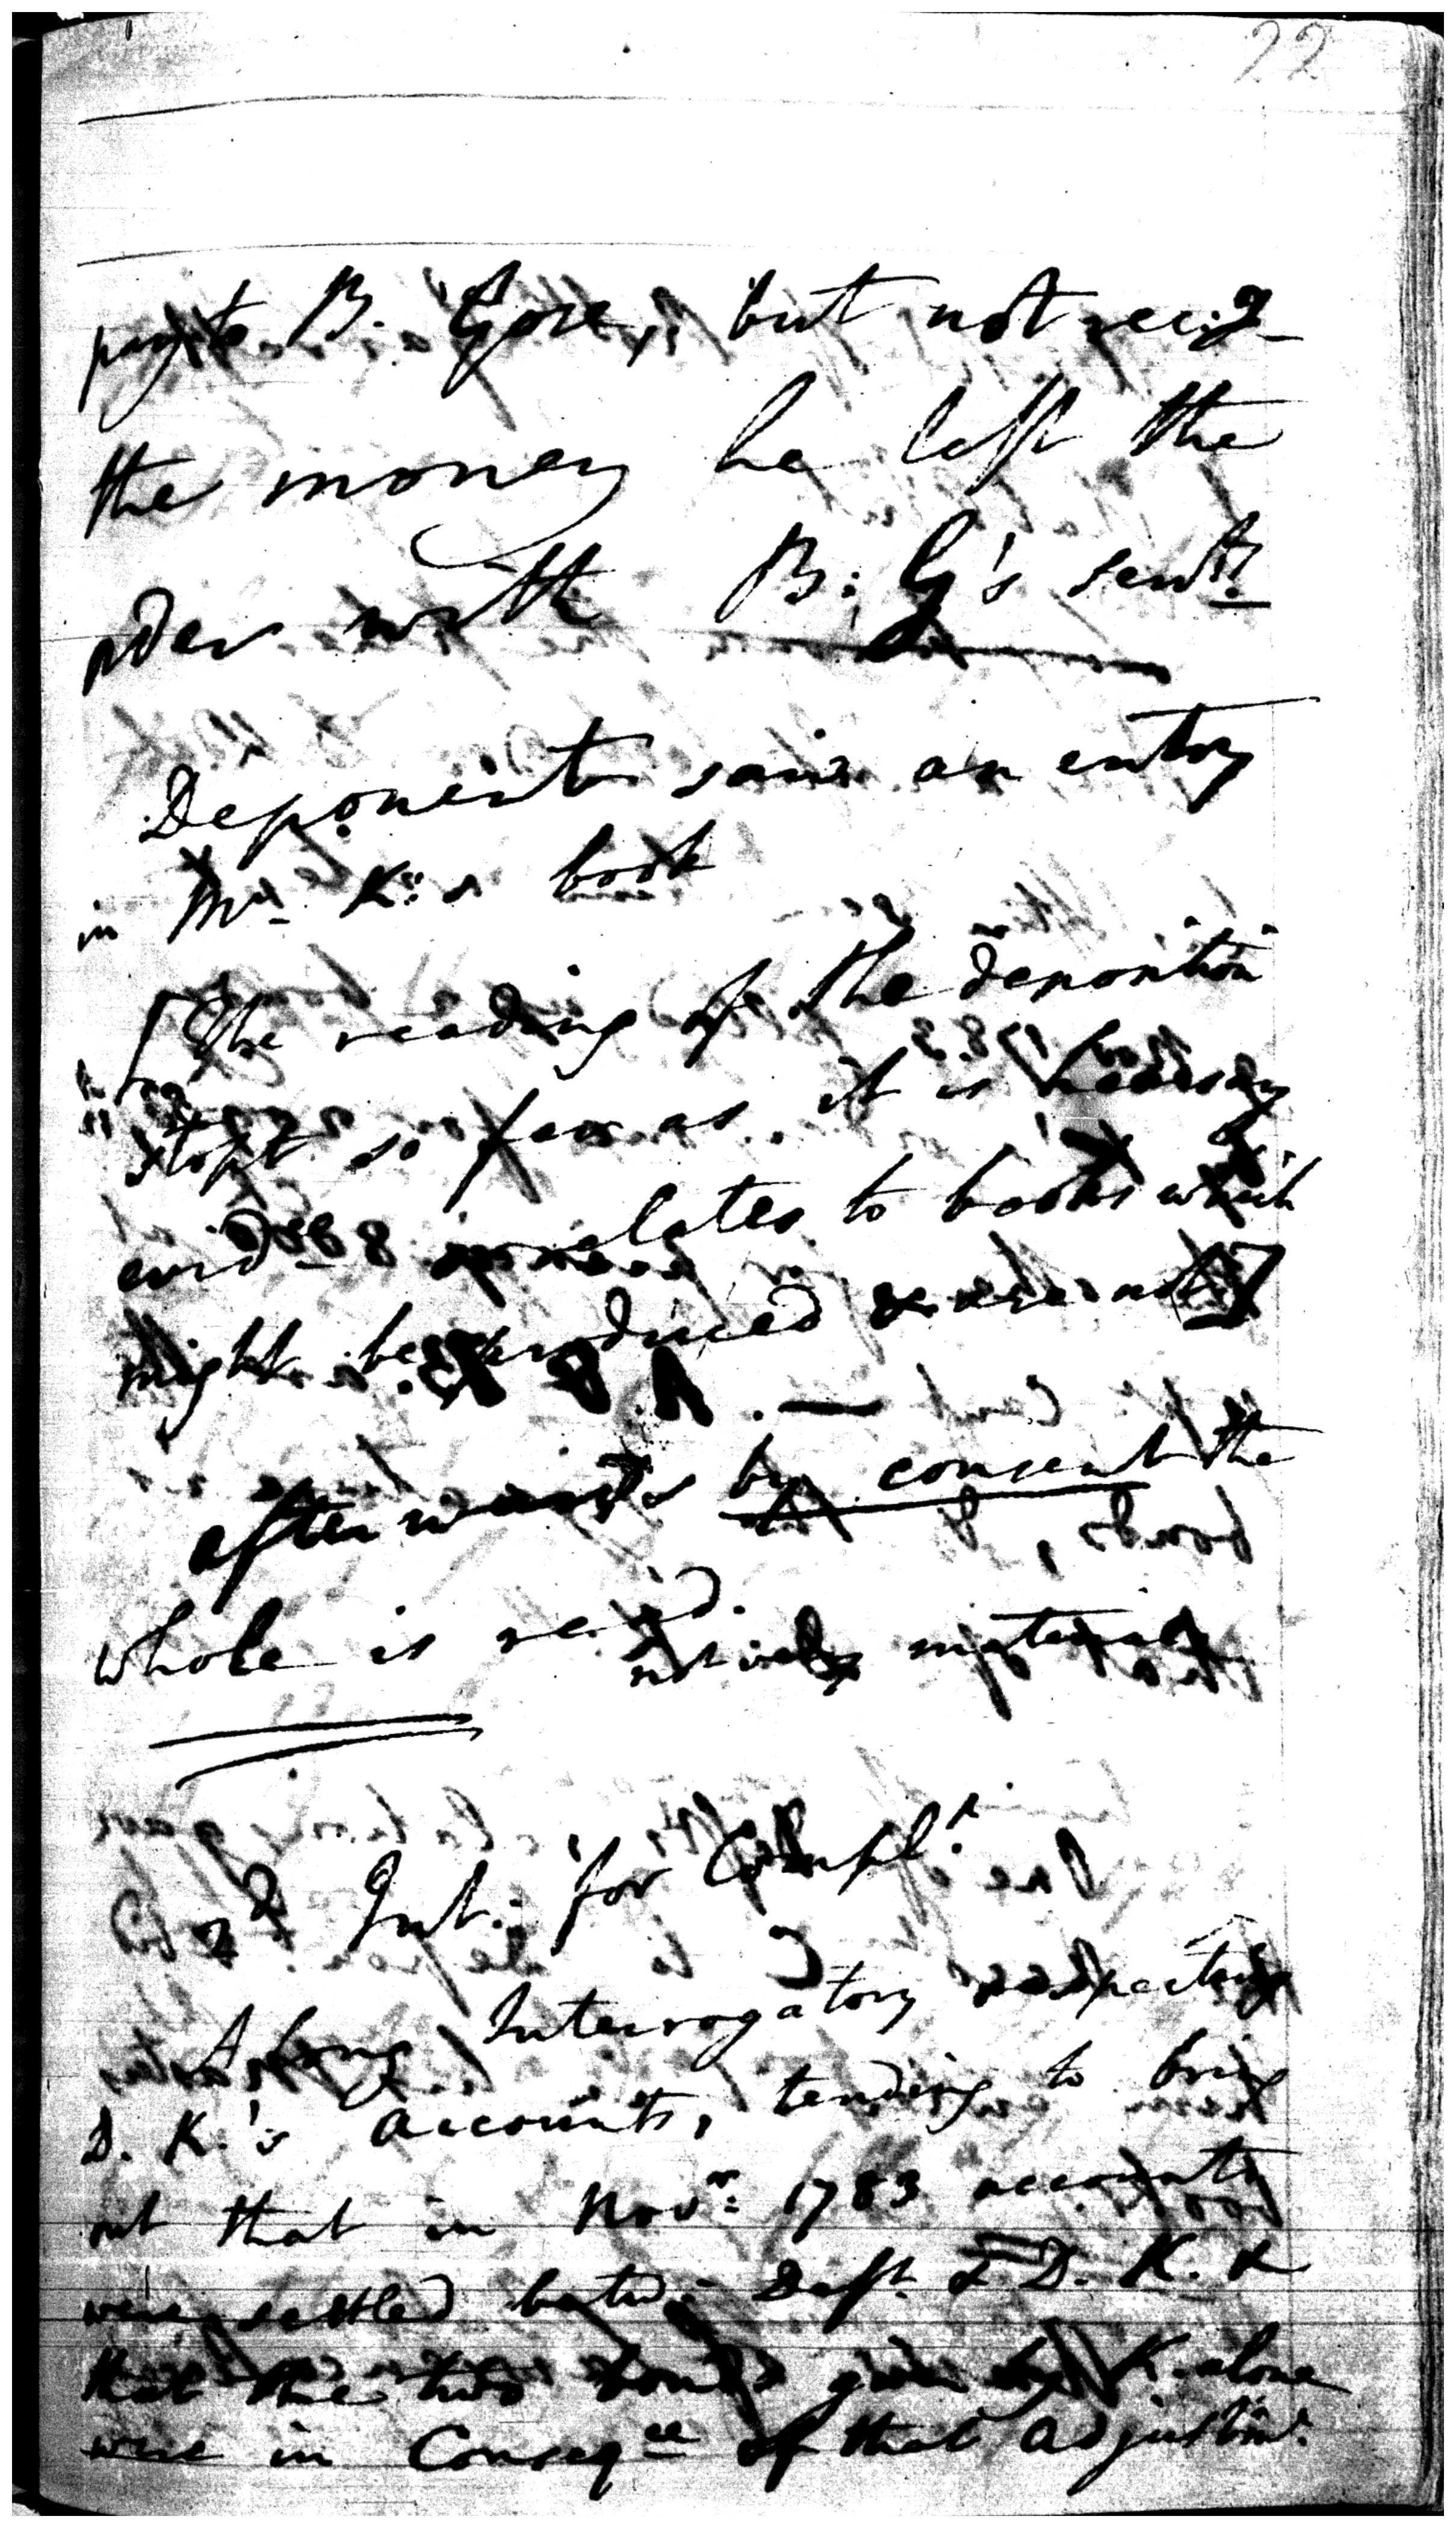 22
pay to B. Gore, but not recg
the money he left the
order with B: G's servt.
Deponent saw an entry
in Mr K:s book
[The reading of the deposition
stopt so far as it is
evidce relates to books which
might be produced & are not]
afterwards by consent the
whole is read. not very material
2d Int: for Complt.
A long Interrogatory respecting
D. K.'s accounts, tending to bring
out that in Novr: 1783 accounts
were settled betw: Deft. & D. K. &
that the two bonds given by K. alone
were in Conseqce of that adjustmt.